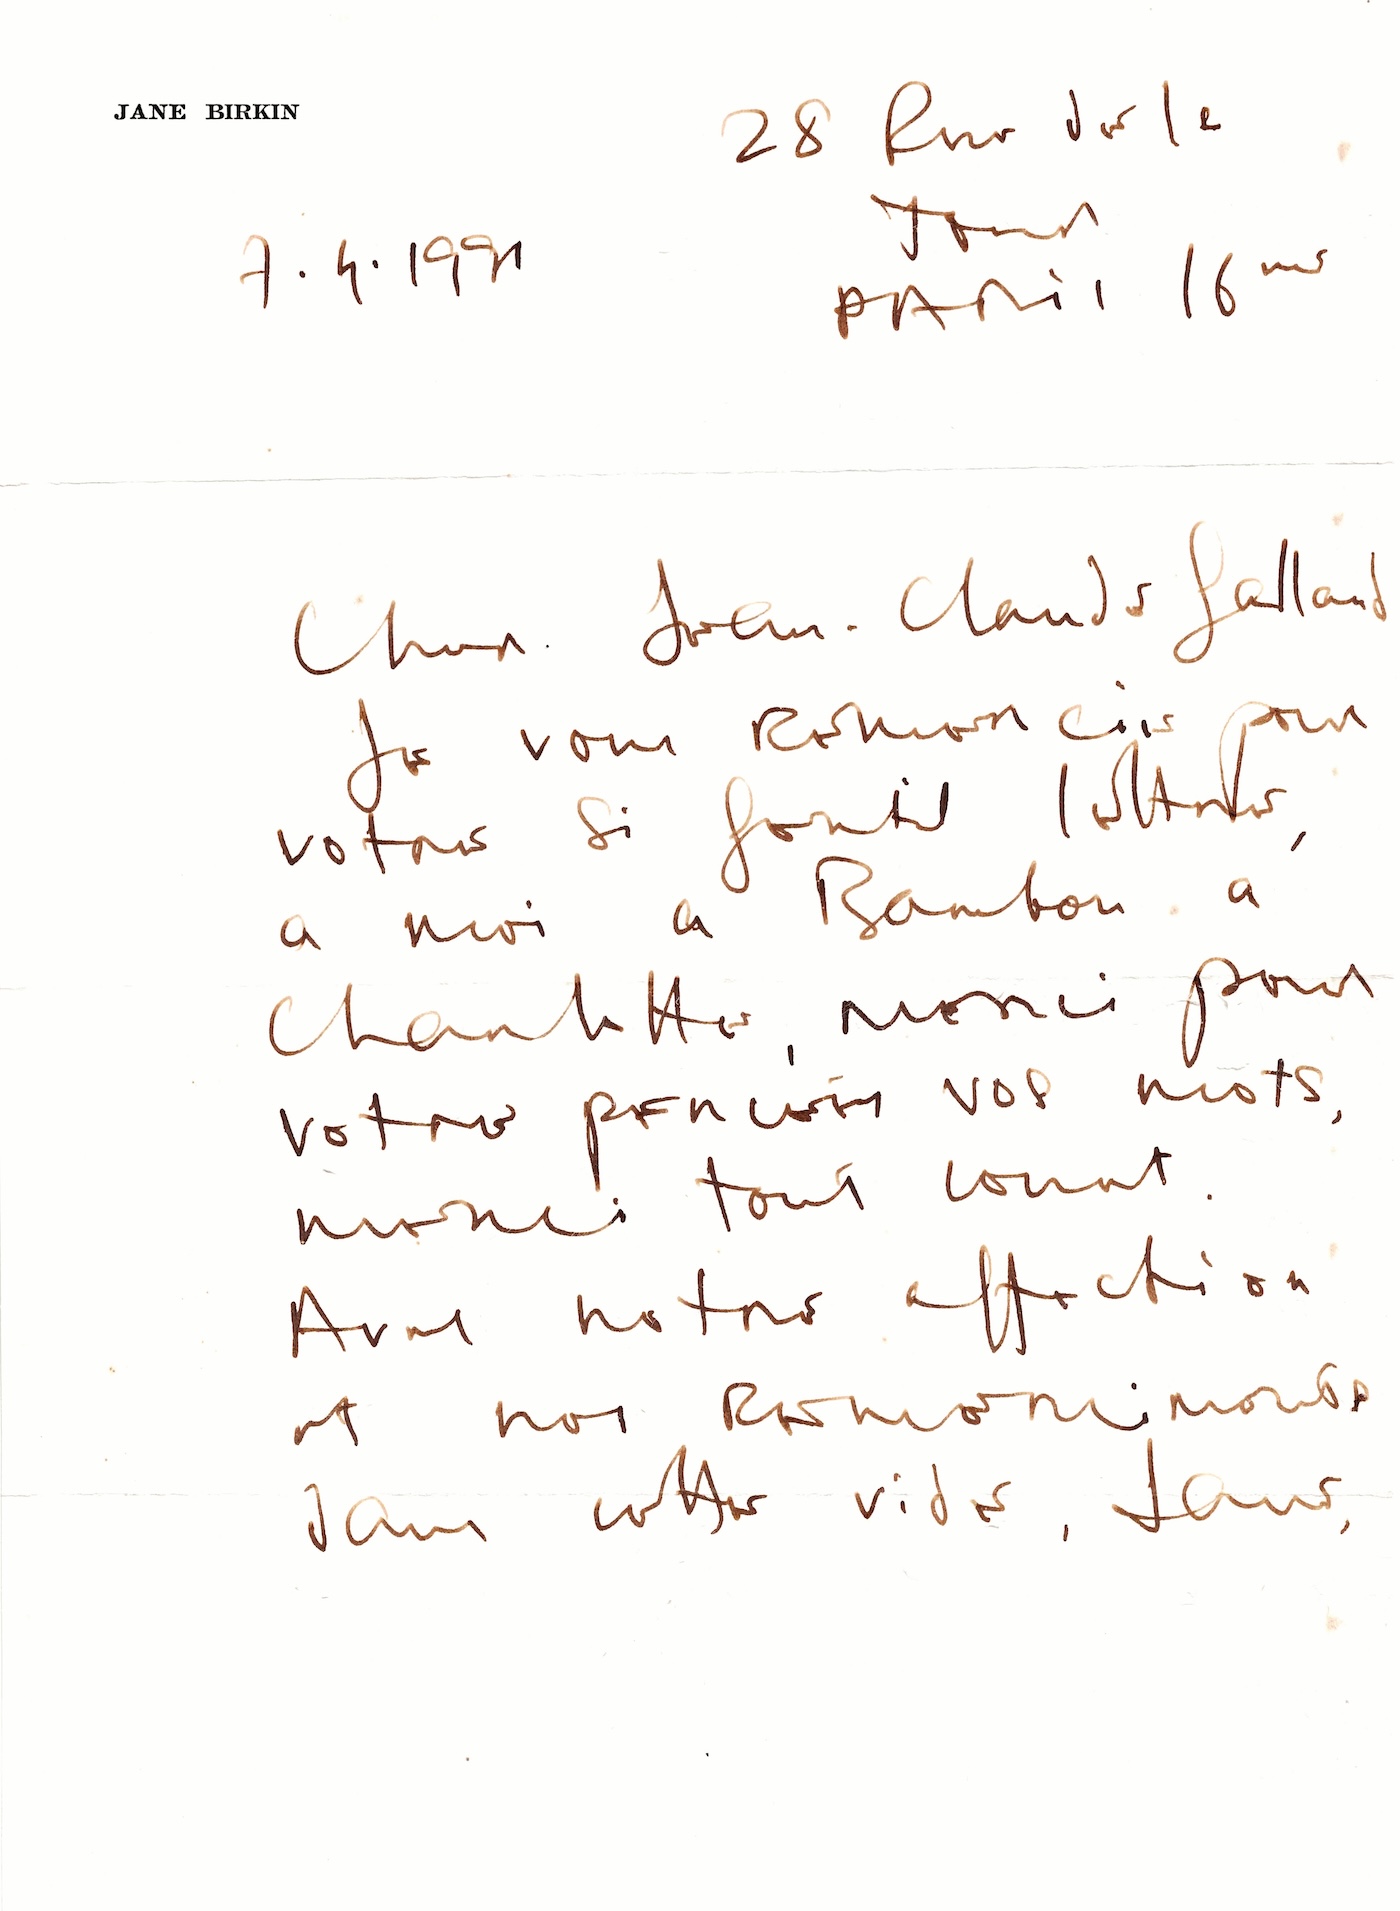 JANE BIRKIN
28 Rue de la
Tour
PARIS 16 me
7.4.1991
Cher Jean-Claude Galland
Je vous remercie pour
votre si gentil lettre,
a moi a Bambou a
Charlotte, merci pour
votre pensées vos mots,
merci tout court.
Avec notre affection
et nos remerciments
dans cette vide, Jane,